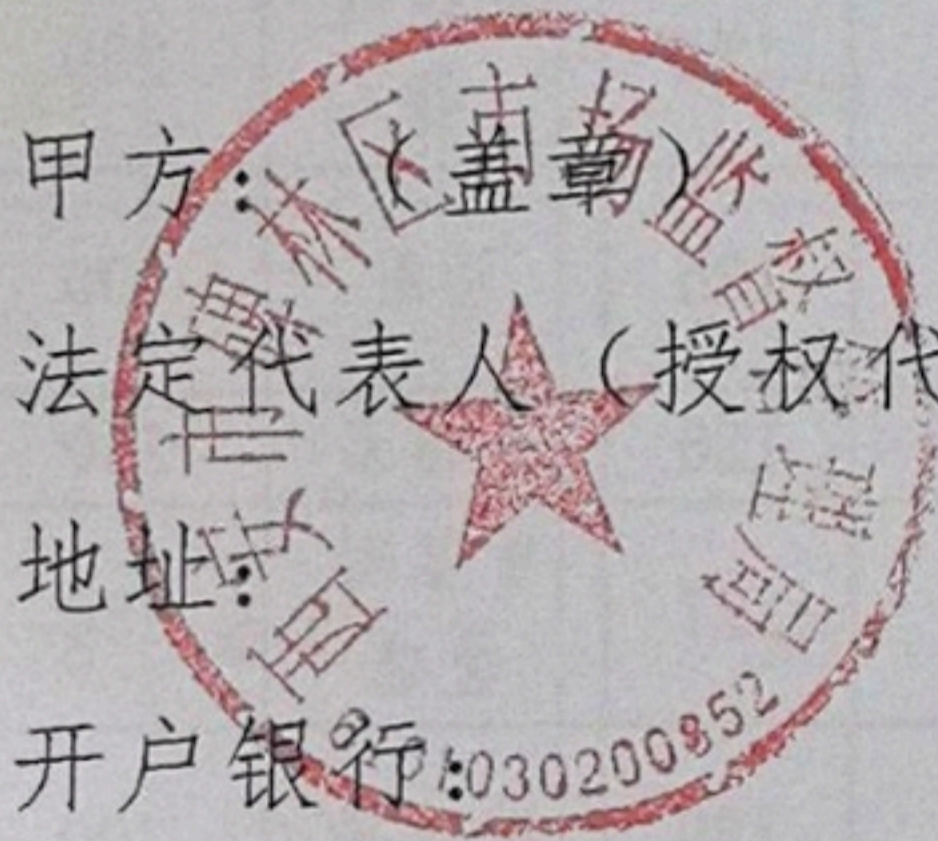 甲方：（盖章）
法定代表人（授权代
地址：
开户银行：
西安市碑林区市场监督管理局
030200852